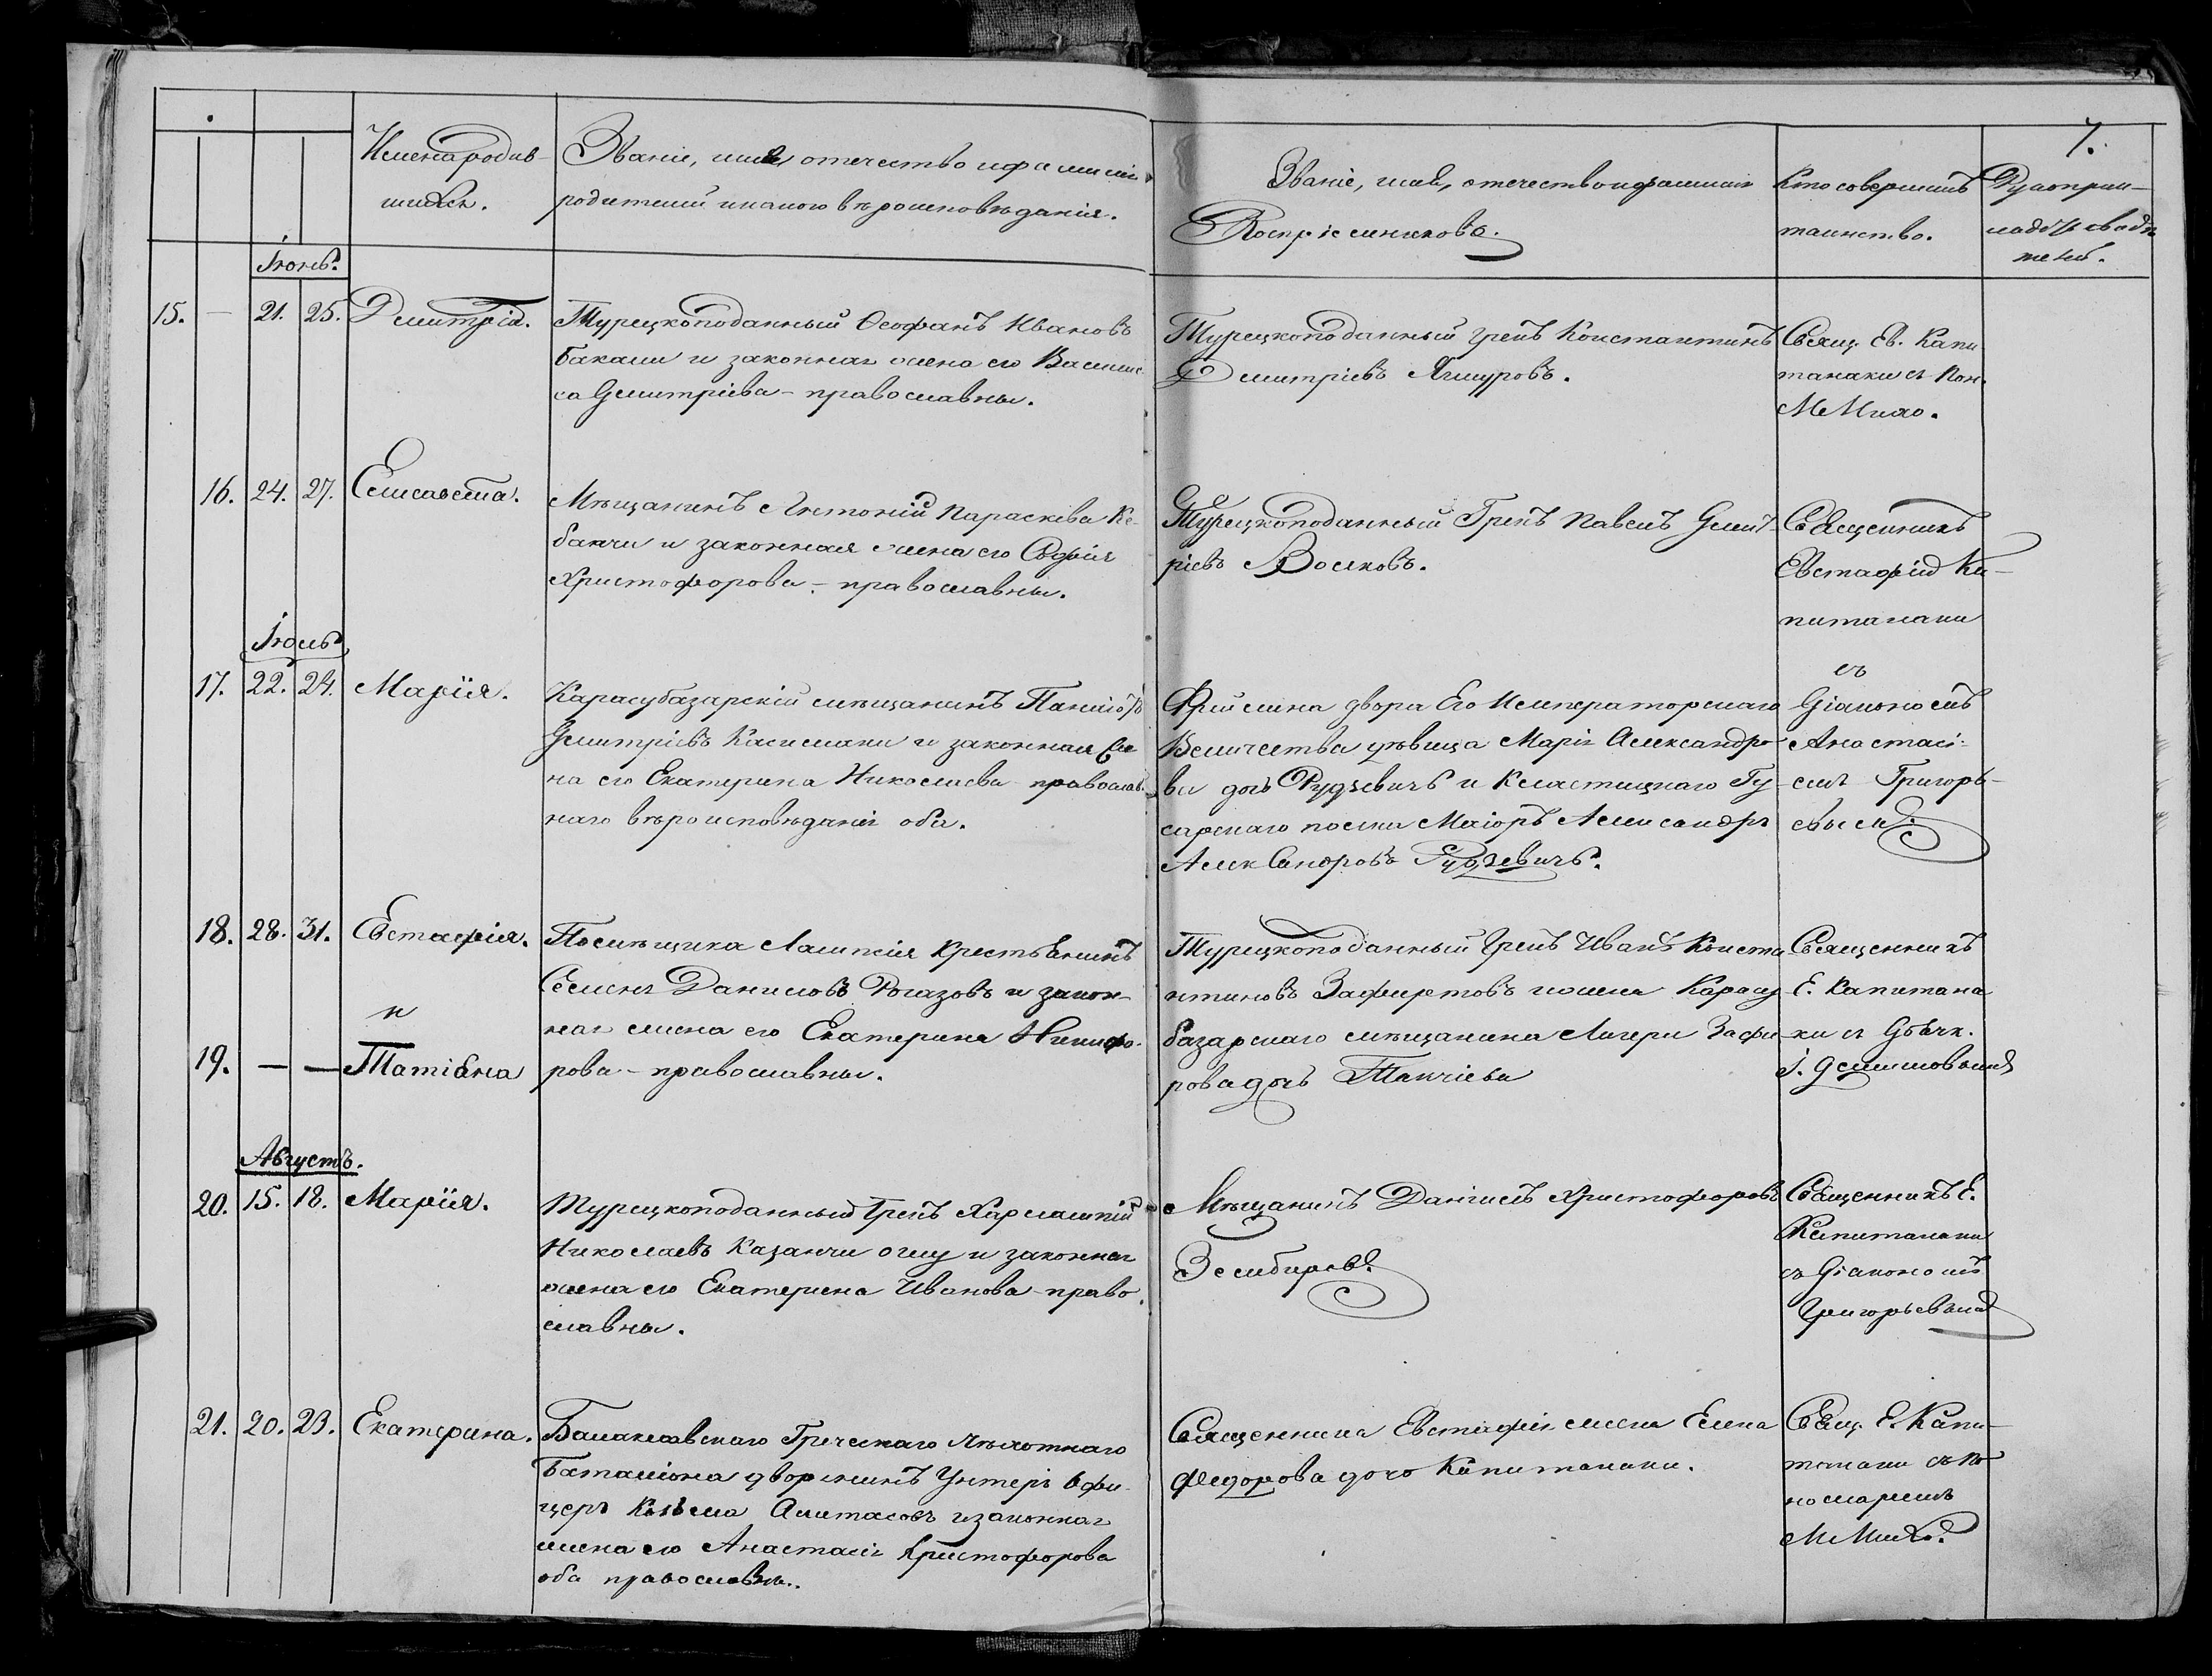 7.
Имена родив-
шихся.
Званіе, имя, отчество и фамилія
родителей и какого вѣроисповѣданія.
Званіе, имя, отечество и фамилія
Воспріемниковъ.
Кто совершилъ
таинство.
Рукоприк-
ладство свидѣ
телей.
Іюнь.
15. — 21. 25. Димитрій.
Турецкоподанный Ѳеофанъ Ивановъ
Бакали и законная жена его Василис-
са Дмитріева - православны.
Турецкоподанный грекъ Константинъ
Дмитріевъ Ягмуровъ.
Свящ. Ев. Капи-
танаки съ Пон.
М. Михо.
16. 24. 27. Елисавета.
Мѣщанинъ Антоній Параскева Ке-
бапчи и законная жена его Софія
Христофорова - православны.
Турецкоподанный Грекъ Павелъ Дмит-
ріевъ Восковъ.
Священникъ
Евстафій Ка-
питанаки
съ
Діакономъ
Анастасі-
емъ Григорь-
евымъ.
Іюль
17. 22. 24. Марія.
Карасубазарскій мѣщанинъ Панаіотъ
Дмитріевъ Касимаки и законная же
на его Екатерина Николаева православ-
наго вѣроисповѣданія оба.
Фрейлина двора Его Императорскаго
Величества дѣвица Марія Александро-
ва дочь Рудзевичъ и Кластицкаго Гу-
сарскаго полка Маіоръ Александръ
Александровъ Рудзевичъ.
18. 28. 31. Евстафія.
и
19. — — Татіана
Помѣщика Лампсія крестьянинъ
Семенъ Даниловъ Рогазовъ и закон-
ная жена его Екатерина Никифо-
рова - православны.
Турецкоподанный Грекъ Иванъ Конста
нтиновъ Зафиретовъ и жена Карасу
базарскаго мѣщанина Лигери Зафи
рова дочь Панчіева
Священникъ
Е. Капитана
ки съ Дьячк.
І. Демишовымъ
Августъ.
20. 15. 18. Марія.
Турецкоподанный Грекъ Харлампій
Николаевъ Казанчи оглу и законная
жена его Екатерина Иванова - право
славны.
Мѣщанинъ Даніилъ Христофоровъ
Зембировъ.
Священникъ Е.
Капитанаки
съ Діакономъ
Григорьевымъ
21. 20. 23. Екатерина.
Балаклавскаго Греческаго пѣхотнаго
Баталіона дворянинъ Унтеръ Офи-
церъ Козьма Алитасовъ и законная
жена его Анастасія Христофорова
оба православны.
Священника Евстафія жена Елена
Федорова дочь Капитанаки.
Свящ. Е. Капи-
танаки съ По
номаремъ
М. Михо.